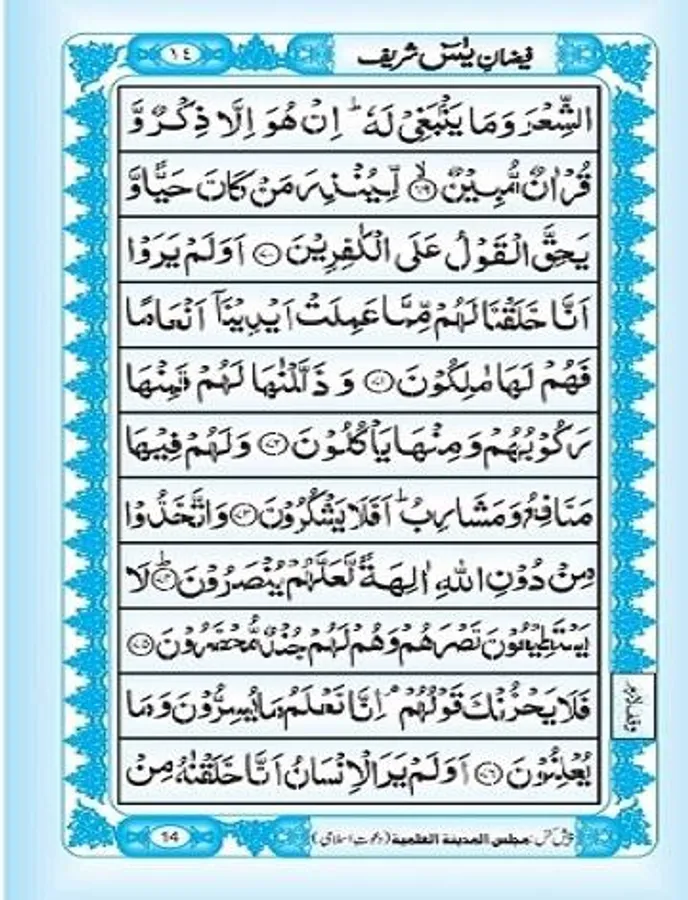 ١٤
فیضانِ یٰسٓ شریف
الشِّعْرَ وَمَا يَنْۢبَغِيْ لَهٗ ؕ اِنْ هُوَ اِلَّا ذِكْرٌ وَّ
قُرْاٰنٌ مُّبِيْنٌ ﴿٦٩﴾ لِّيُنْذِرَ مَنْ كَانَ حَيًّا وَّ
يَحِقَّ الْقَوْلُ عَلَى الْكٰفِرِيْنَ ﴿٧٠﴾ اَوَلَمْ يَرَوْا
اَنَّا خَلَقْنَا لَهُمْ مِّمَّا عَمِلَتْ اَيْدِيْنَاۤ اَنْعَامًا
فَهُمْ لَهَا مٰلِكُوْنَ ﴿٧١﴾ وَ ذَلَّلْنٰهَا لَهُمْ فَمِنْهَا
رَكُوْبُهُمْ وَمِنْهَا يَاْكُلُوْنَ ﴿٧٢﴾ وَلَهُمْ فِيْهَا
مَنَافِعُ وَمَشَارِبُ ؕ اَفَلَا يَشْكُرُوْنَ ﴿٧٣﴾ وَاتَّخَذُوْا
مِنْ دُوْنِ اللّٰهِ اٰلِهَةً لَّعَلَّهُمْ يُنْصَرُوْنَ ﴿٧٤﴾ؕ لَا
يَسْتَطِيْعُوْنَ نَصْرَهُمْ وَهُمْ لَهُمْ جُنْدٌ مُّحْضَرُوْنَ ﴿٧٥﴾
فَلَا يَحْزُنْكَ قَوْلُهُمْ ۘ اِنَّا نَعْلَمُ مَا يُسِرُّوْنَ وَمَا
وقف لازم
يُعْلِنُوْنَ ﴿٧٦﴾ اَوَلَمْ يَرَ الْاِنْسَانُ اَنَّا خَلَقْنٰهُ مِنْ
پیش کش: مجلس المدینة العلمیة (دعوتِ اسلامی)
14